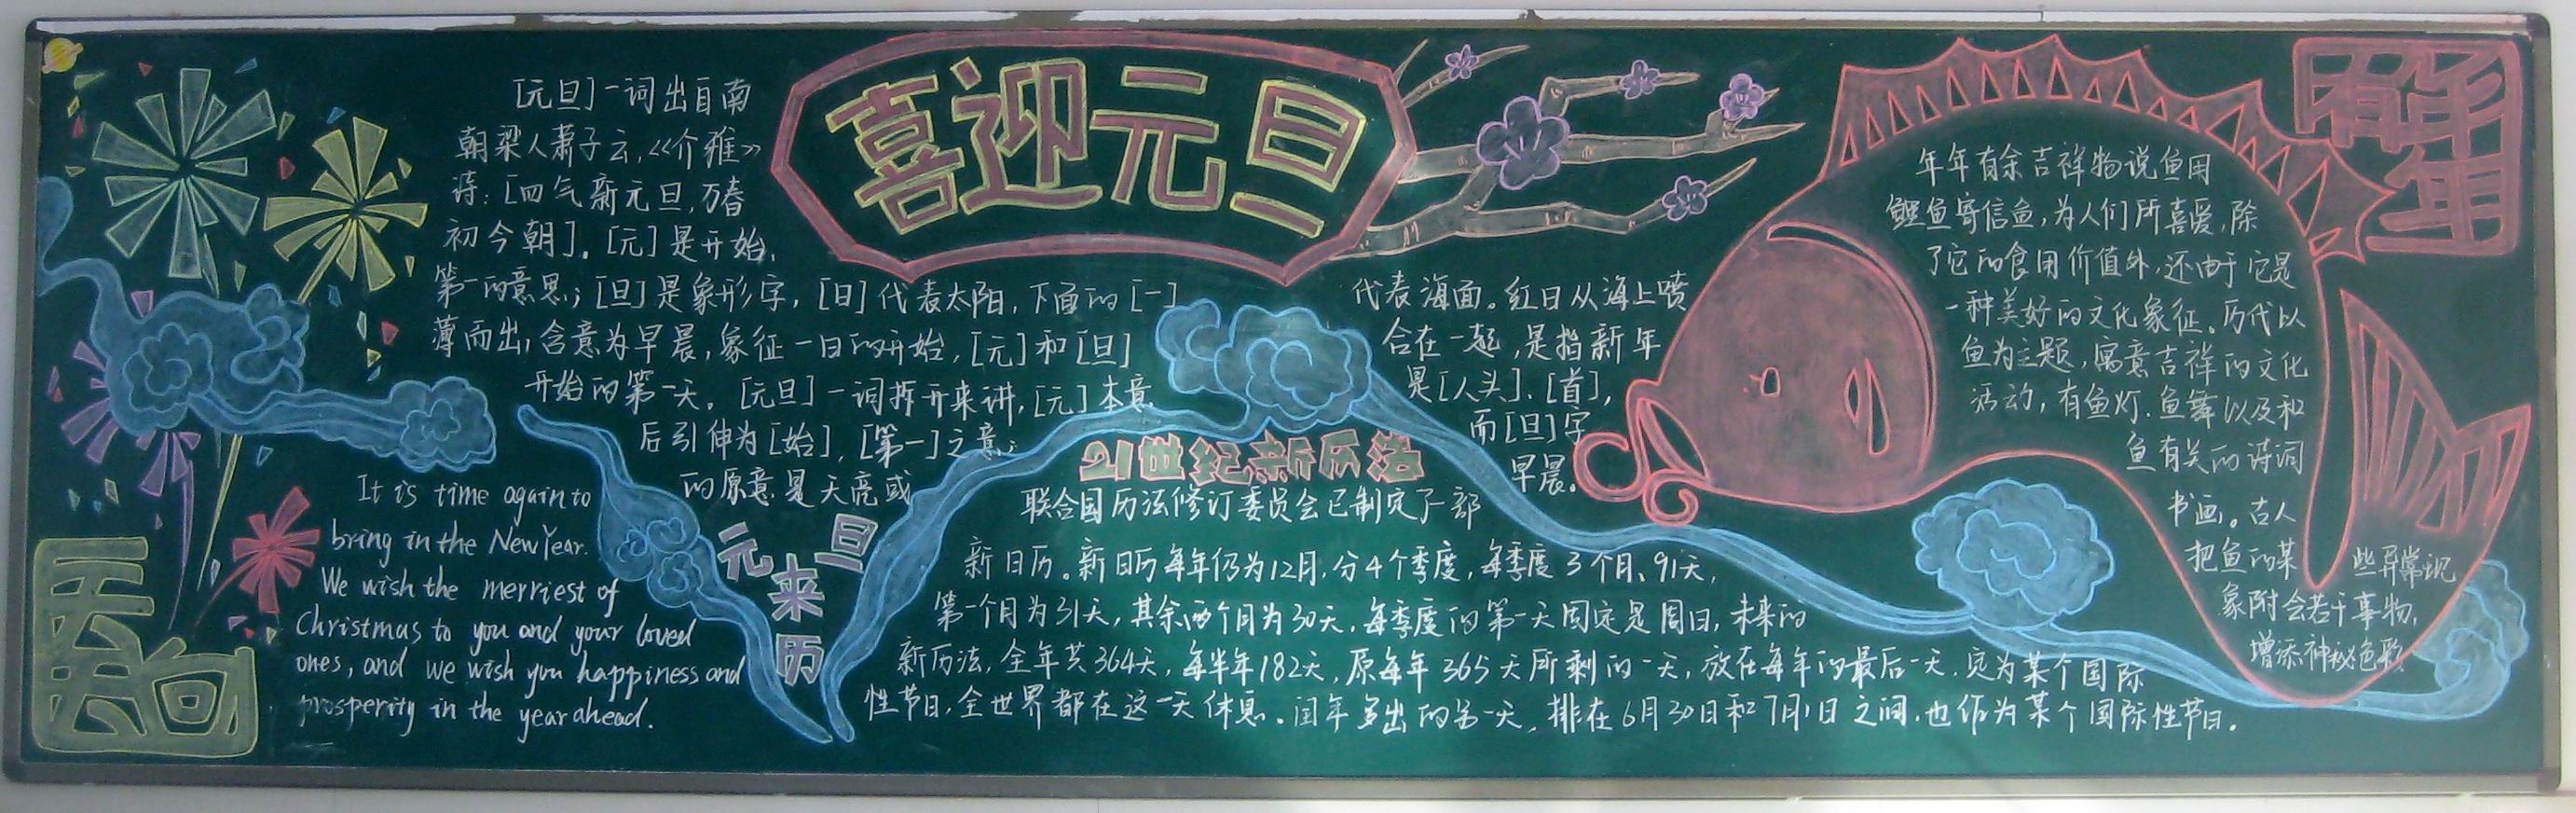 喜迎元旦
[元旦]一词出自南
朝梁人萧子云,《介雅》
诗:[四气新元旦,万春
初今朝]。[元]是开始,
第一的意思;[旦]是象形字,[日]代表太阳,下面的[一] 代表海面。红日从海上喷
薄而出,含意为早晨,象征一日的开始,[元]和[旦] 合在一起,是指新年
开始的第一天。[元旦]一词拆开来讲,[元]本意 是[人头]、[首],
后引伸为[始],[第一]之意; 而[旦]字
的原意是天亮或 早晨。
元旦来历
It is time again to
bring in the New Year.
We wish the merriest of
Christmas to you and your loved
ones, and we wish you happiness and
prosperity in the year ahead.
21世纪新历法
联合国历法修订委员会已制定了一部
新日历。新日历每年仍为12月,分4个季度,每季度3个月、91天,
第一个月为31天,其余两个月为30天,每季度的第一天固定是周日,未来的
新历法,全年共364天,每半年182天,原每年365天所剩的一天,放在每年的最后一天,定为某个国际
性节日,全世界都在这一天休息。闰年多出的另一天,排在6月30日和7月1日之间,也作为某个国际性节日。
有年
年
年年有余吉祥物说鱼用
鲤鱼寄信鱼,为人们所喜爱,除
了它的食用价值外,还由于它是
一种美好的文化象征。历代以
鱼为主题,寓意吉祥的文化
活动,有鱼灯、鱼舞以及和
鱼有关的诗词
书画。古人
把鱼的某 些异常现
象附会若干事物,
增添神秘色彩